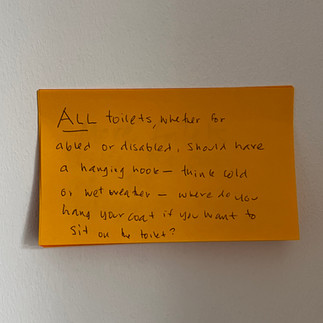 ALL toilets, whether for
abled or disabled, should have
a hanging hook – think cold
or wet weather – where do you
hang your coat if you want to
sit on the toilet?